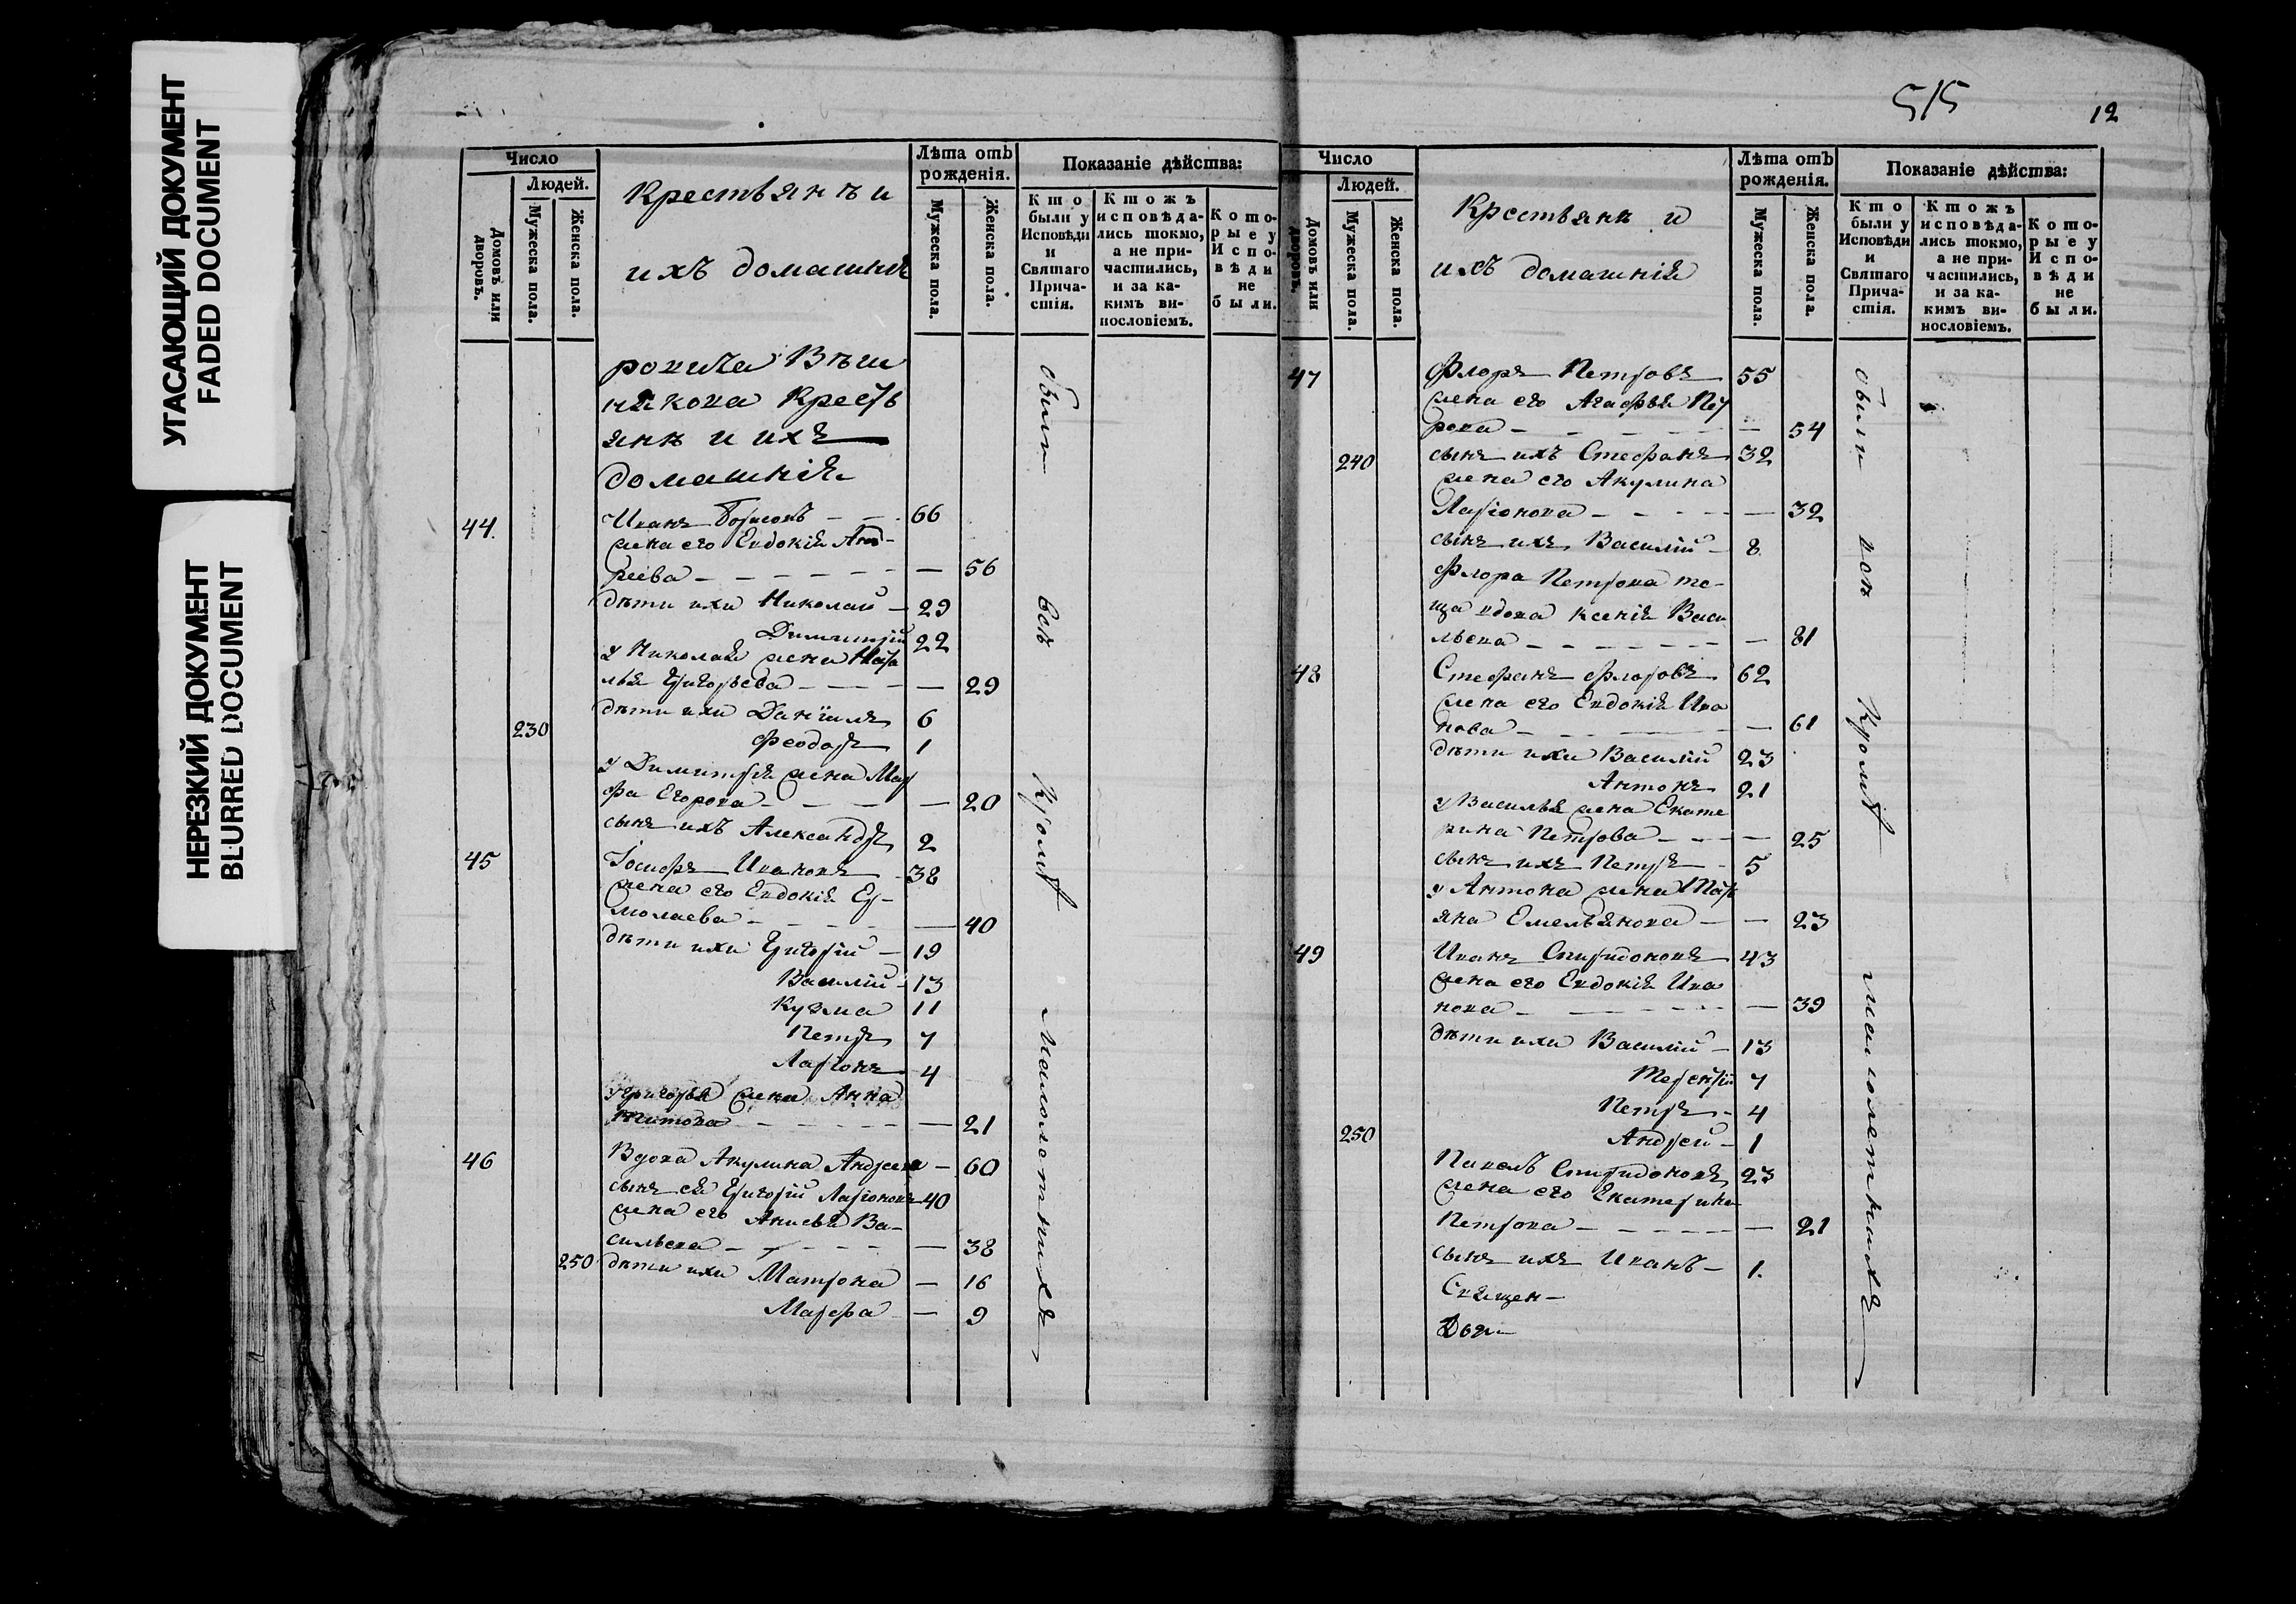 УГАСАЮЩИЙ ДОКУМЕНТ
FADED DOCUMENT
НЕРЕЗКИЙ ДОКУМЕНТ
BLURRED DOCUMENT
Число
Людей.
Домовъ или дворовъ.
Мужеска пола.
Женска пола.
Крестьянъ и
ихъ домашнія
Лѣта отъ рожденія.
Мужеска пола.
Женска пола.
Показаніе дѣйства:
Кто были у Исповѣди и Святаго Причастія.
Ктожъ исповѣдались токмо, а не причастились, и за какимъ винословіемъ.
Которые у Исповѣди не были.
Вѣш
някова Кресть
янѣ и ихъ
домашнія
44. Иванъ Борисовъ — — 66
жена его Евдокія Анд-
реева — — — — — — 56
дѣти ихи Николай — 29
Димитрій 22
у Николая жена Ната
лья Григорьева — — — — 29
дѣти ихи Даніилъ 6
230 Феодоръ 1
у Димитрія жена Мар
фа Егорова — — — — 20
сынъ ихъ Александръ 2
45 Іосифъ Ивановъ 38
жена его Евдокія Ер-
молаева — — — — — 40
дѣти ихи Григорій — 19
Василій — 13
Кузма 11
Петръ 7
Ларіонъ 4
у Григорья жена Анна
Титова — — — — — — 21
46 Вдова Акулина Андреева — 60
сынъ ея Григорій Ларіоновъ 40
жена его Анисья Ва-
сильева — — — — — — 38
250 дѣти ихи Матрона — 16
Марфа — 9
были всѣ кромѣ малолетнихъ
515
12
Число
Людей.
Домовъ или дворовъ.
Мужеска пола.
Женска пола.
Крестьянѣ и
ихъ домашнія
Лѣта отъ рожденія.
Мужеска пола.
Женска пола.
Показаніе дѣйства:
Кто были у Исповѣди и Святаго Причастія.
Ктожъ исповѣдались токмо, а не причастились, и за какимъ винословіемъ.
Которые у Исповѣди не были.
47 Флоръ Петровъ 55
жена его Агафья Пет
рова — — — — — — — 54
240 сынъ ихъ Стефанъ 32
жена его Акулина
Ларіонова — — — — — 32
сынъ ихъ Василій — 8
Флора Петрова те-
ща вдова Ксенія Васи
льева — — — — — — — 81
48 Стефанъ Флоровъ 62
жена его Евдокія Ива
нова — — — — — — 61
дѣти ихи Василій 23
Антонъ 21
у Василья жена Екате
рина Петрова — — — — 25
сынъ ихъ Петръ — 5
у Антона жена Тать
яна Емельянова — — 23
49 Иванъ Спиридоновъ 43
жена его Евдокія Ива
нова — — — — — — 39
дѣти ихи Василій — 13
Терентій 7
Петръ — 4
250 Андрей — 1
Павелъ Спиридоновъ 23
жена его Екатерина
Петрова — — — — — — 21
сынъ ихъ Иванъ — 1.
Священ —
были всѣ кромѣ малолетнихъ